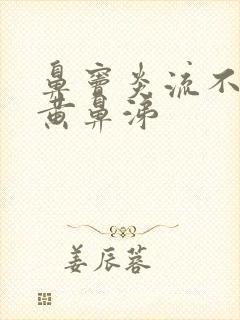 鼻窦炎流不
黄鼻涕
姜辰蓉